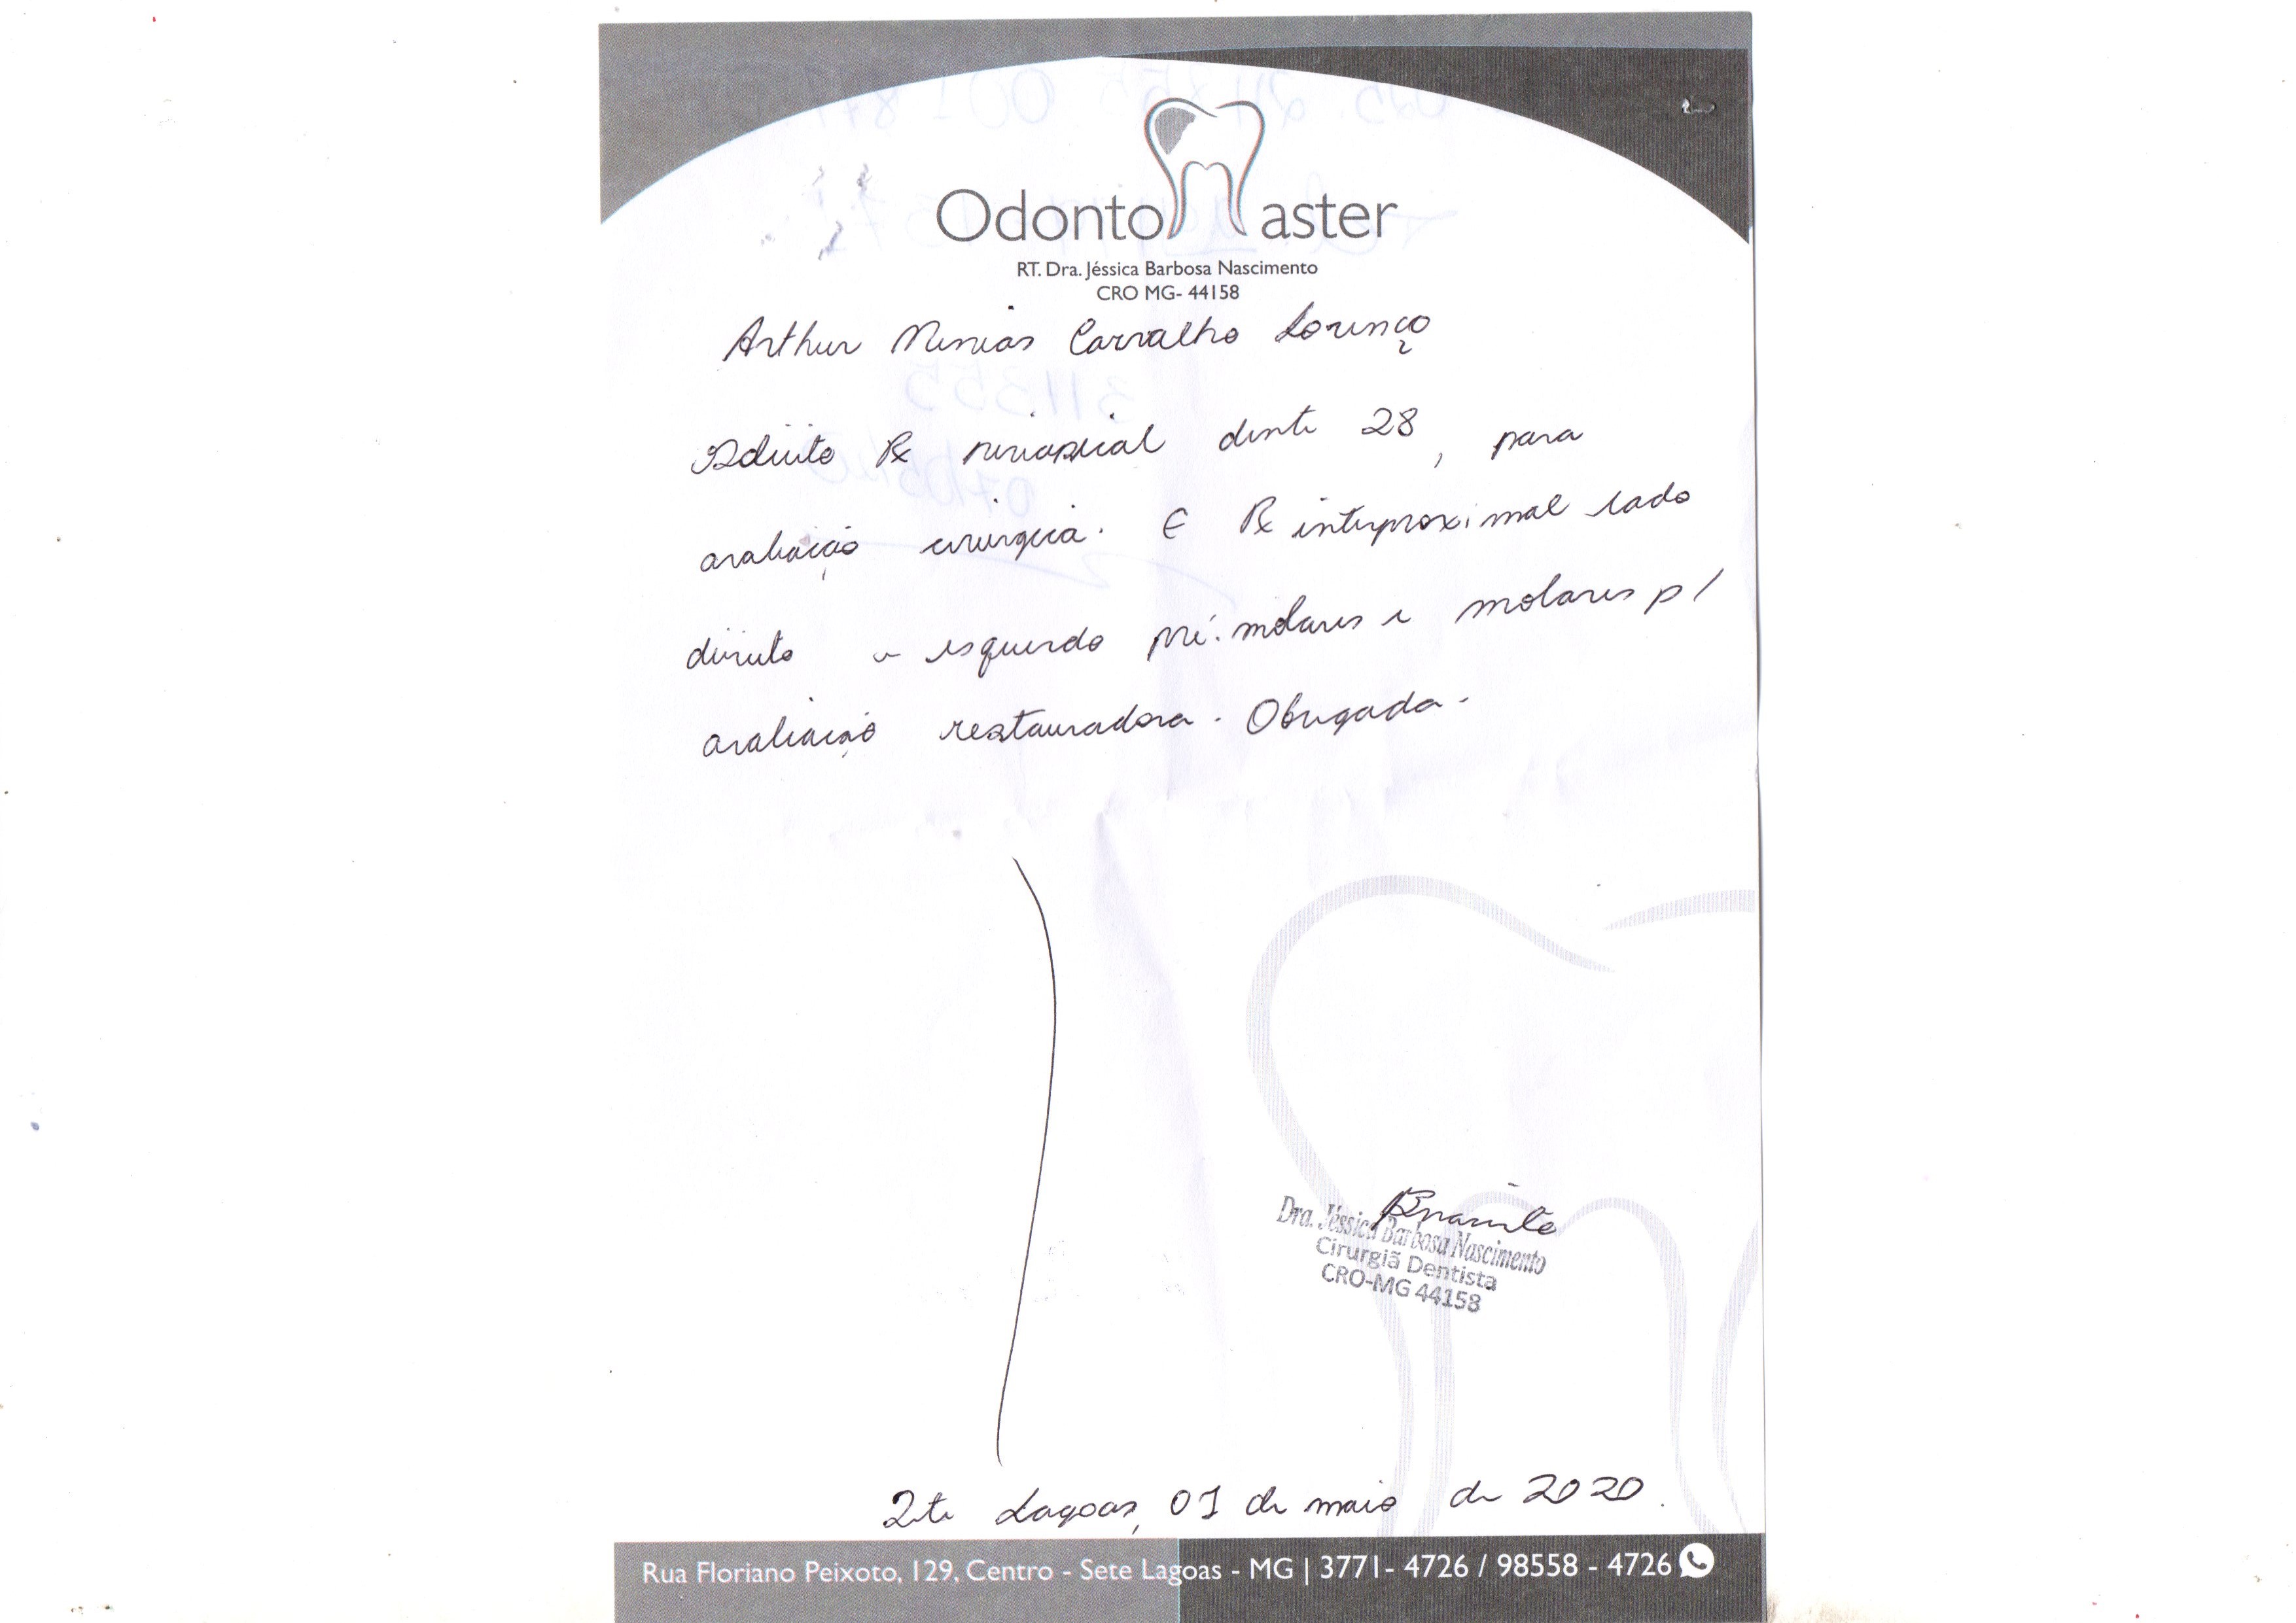 OdontoMaster
RT. Dra. Jéssica Barbosa Nascimento
CRO MG- 44158
Arthur Carvalho Lourenço
Solicito Rx periapical dente 28, para
avaliação cirúrgica. E Rx interproximal lado
direito e esquerdo pré-molares e molares p/
avaliação restauradora. Obrigada.
Dra. Jéssica Barbosa Nascimento
Cirurgiã Dentista
CRO-MG 44158
Sete Lagoas, 01 de maio de 2020.
Rua Floriano Peixoto, 129, Centro - Sete Lagoas - MG | 3771- 4726 / 98558 - 4726